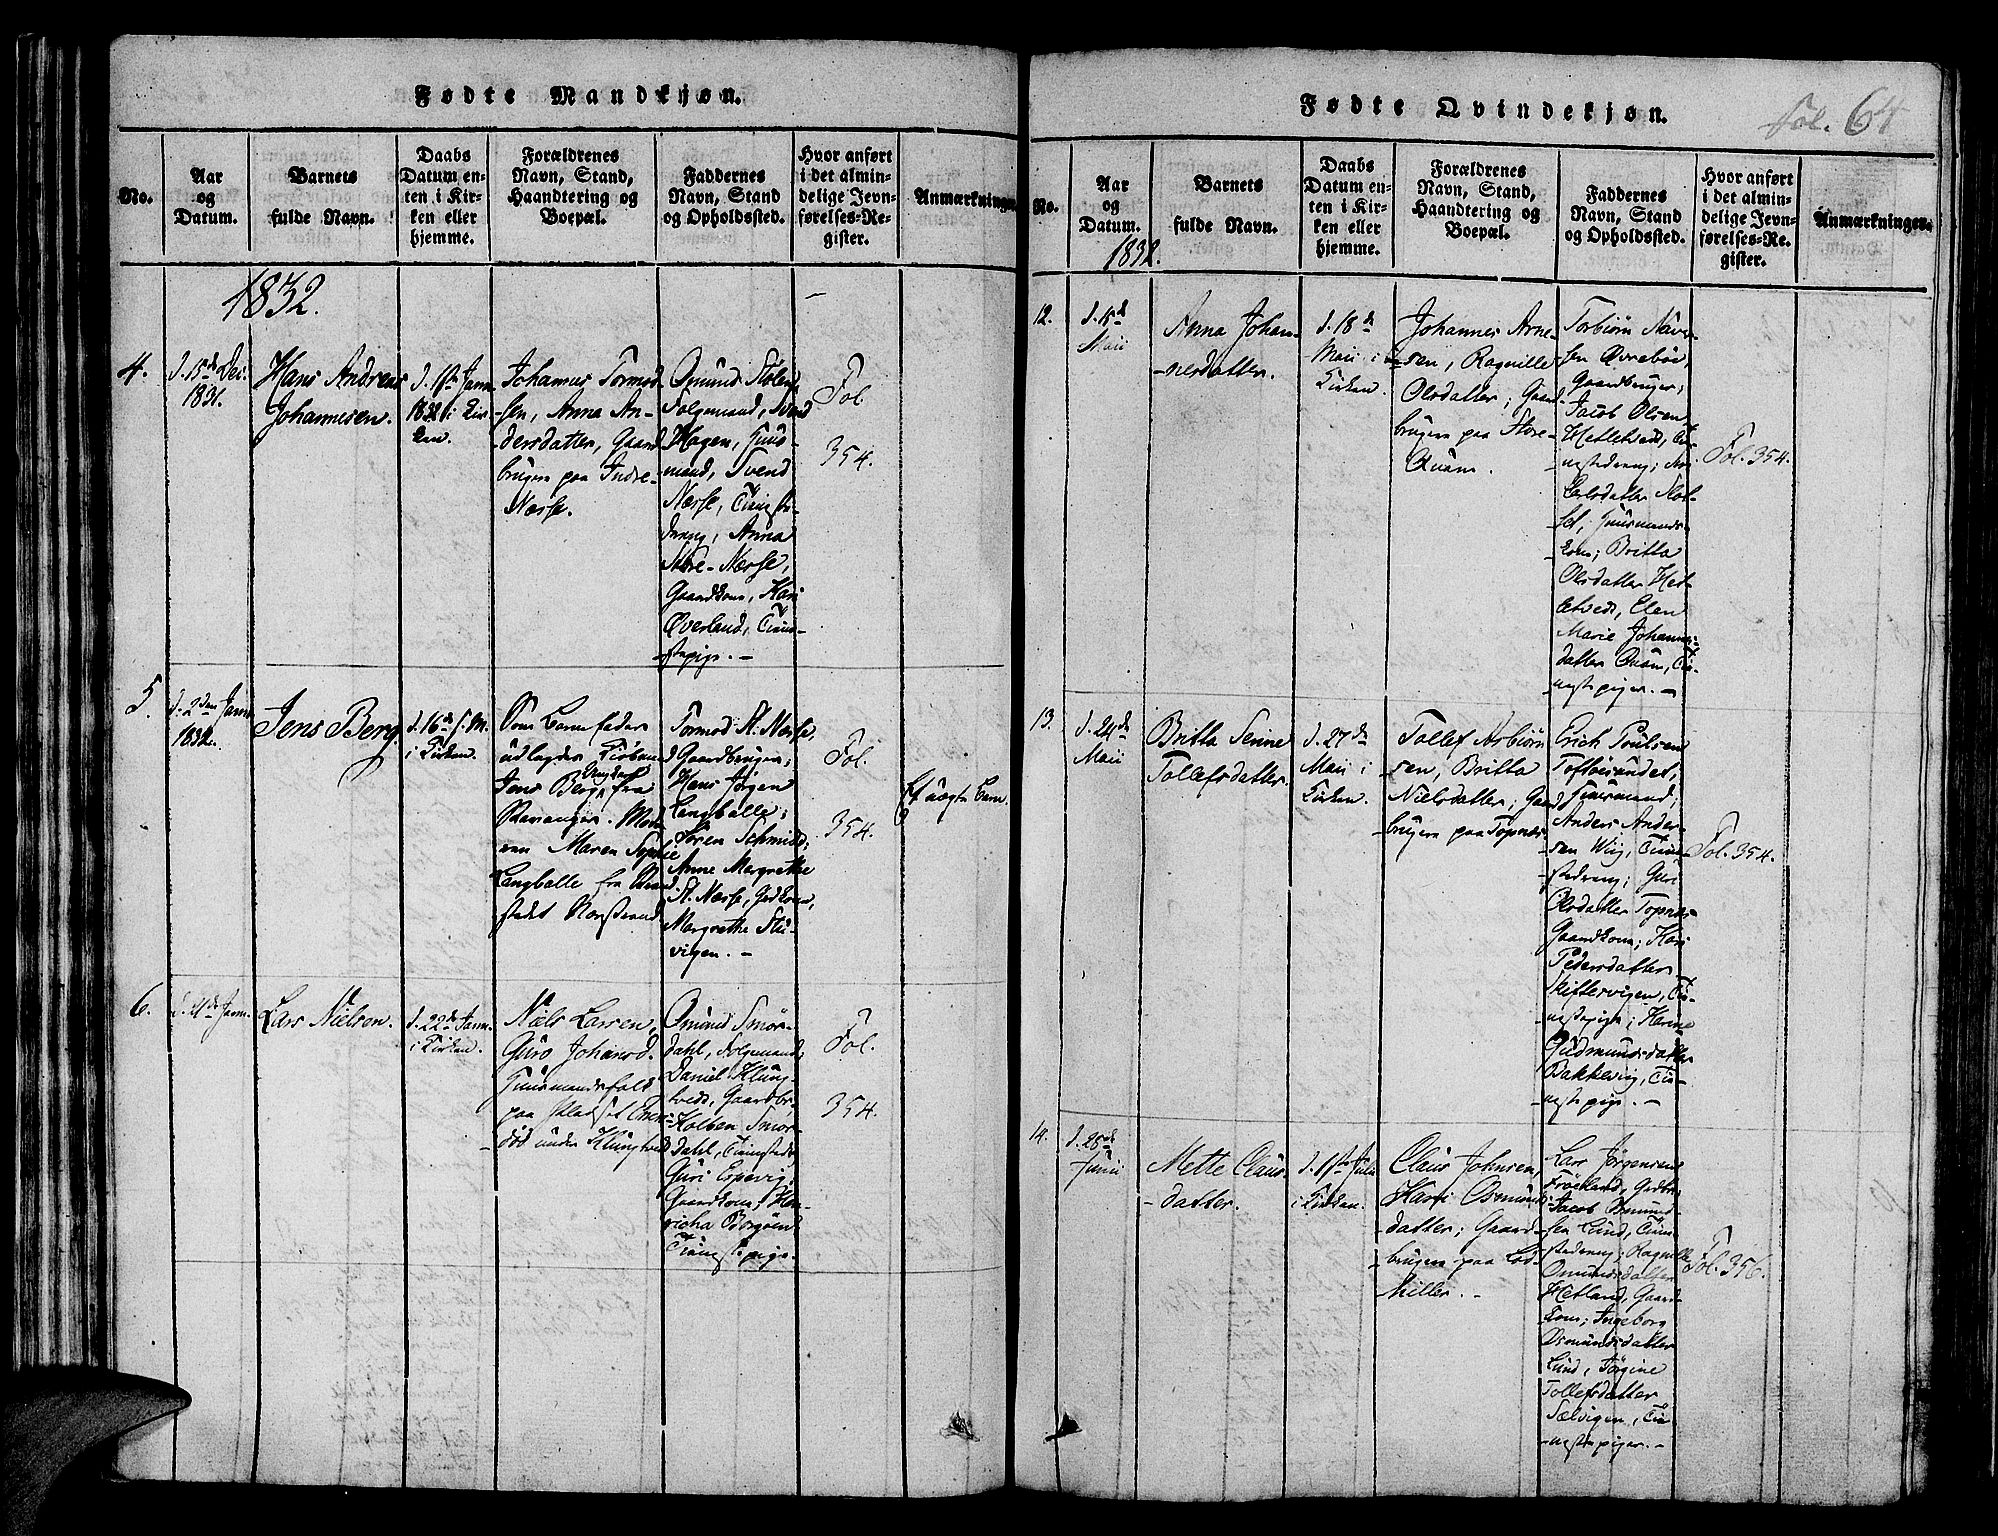 Fødte Mandkjøn.
No.
Aar
og
Datum.
Barnets
fulde Navn.
Daabs
Datum en-
ten i Kir-
ken eller
hjemme.
Forældrenes
Navn, Stand,
Haandtering og
Boepæl.
Faddernes
Navn, Stand
og Opholdssted.
Hvor anført
i det almin-
delige Jevn-
førelses-Re-
gister.
Anmærkninger.
1832.
4.
d. 15de Dec.
1831.
Hans Andreas
Johannesen.
d. 1ste Jann.
1832 i Kir-
ken.
Johannes Tormod-
sen, Anna An-
dersdatter, Gaard-
brugere paa Indre-
Nærse.
Omund Stølen
Folgemand, Svend
Hagen, Huus-
mand, Svend
Nærse, Tieneste-
dreng, Anna
Store-Nærse,
Gaardkone, Kari
Øverland, Tiene-
stepige. —
Fol.
354.
5.
d. 2den Jann.
1832.
Jens Berg.
d. 16de s. M.
i Kirken.
Som Barnefader
udlagdes
Jens Berg fra
Stavanger. Mod-
eren Maren Sophie
Langballe fra
stedet Norstrand.
Tormod St. Nærse
Gaardbruger;
Hans Jørgen
Langballe;
Søren Schmidt;
Anne Margrethe
St. Nærse, Grdkone,
Margrethe Stu-
vigen. —
Fol.
354.
Et uægte Barn.
6.
d. 21de Jann.
Lars Nielsen.
d. 22de Jann.
i Kirken.
Niels Larsen,
Guro Johansd.
Huusmandsfolk
paa Pladset
under Klungtvedt
Omund Smør-
dahl, Folgemand,
Daniel Klung-
tvedt, Gaardbr.
Kolben Smør-
dahl, Tienestedr.
Guri Espevig,
Gaardkone, Hen-
richa Borgøen
Tienestepige. —
Fol.
354.
Fødte Qvindekjøn.
fol. 64
No.
Aar
og
Datum.
1832.
Barnets
fulde Navn.
Daabs
Datum en-
ten i Kir-
ken eller
hjemme.
Forældrenes
Navn, Stand,
Haandtering og
Boepæl.
Faddernes
Navn, Stand
og Opholdssted.
Hvor anført
i det almin-
delige Jevn-
førelses-Re-
gister.
Anmærkninger.
12.
d. 15de
Maii
Anna Johan-
nesdatter.
d. 18de
Maii i
Kirken.
Johannes Arne-
sen, Ragnille
Olsdatter; Gaard-
brugere paa Store-
Quam.
Torbiørn
sen Øvrebøe,
Gaardbruger;
Jacob Olsen
Hetletvedt, Tie-
nestedreng;
Larsdatter
Huusmands-
kone; Britta
Olsdatter Het-
letvedt, Elen
Marie Johannis-
datter Quam, Tie-
nestepiger. —
Fol. 354.
13.
d. 24de
Maii
Britta Serine
Tollefsdatter.
d. 27de
Maii i
Kirken.
Tollef Asbiørn-
sen, Britta
Nielsdatter; Gaard-
brugere paa Topnæs
Erich Poulsen
Toftøesundet,
Huusmand;
Anders Ander-
sen Wiig, Tiene-
stedreng; Guri
Olsdatter Topnæs
Gaardkone; Kari
Pedersdatter
Skittervigen, Tie-
nestepige; Karine
Gudmundsdatter
Bakkevig, Tie-
nestepige. —
Fol. 354.
14.
d. 25de
Junii
Mette Claus-
datter.
d. 1ste Julii
i Kirken.
Claus Johnsen,
Kari Osmunds-
datter; Gaard-
brugere paa Lod-
hiller. —
Lars Jørgensen
Frøeland, Grdbr.
Jacob Osmund-
sen Lund, Tiene-
stedreng; Ragnille
Omundsdatter
Hetland, Gaard-
kone; Ingeborg
Osmundsdatter
Lund, Jørgine
Tollefsdatter
Sælvigen, Tie-
nestepiger. —
Fol. 356.